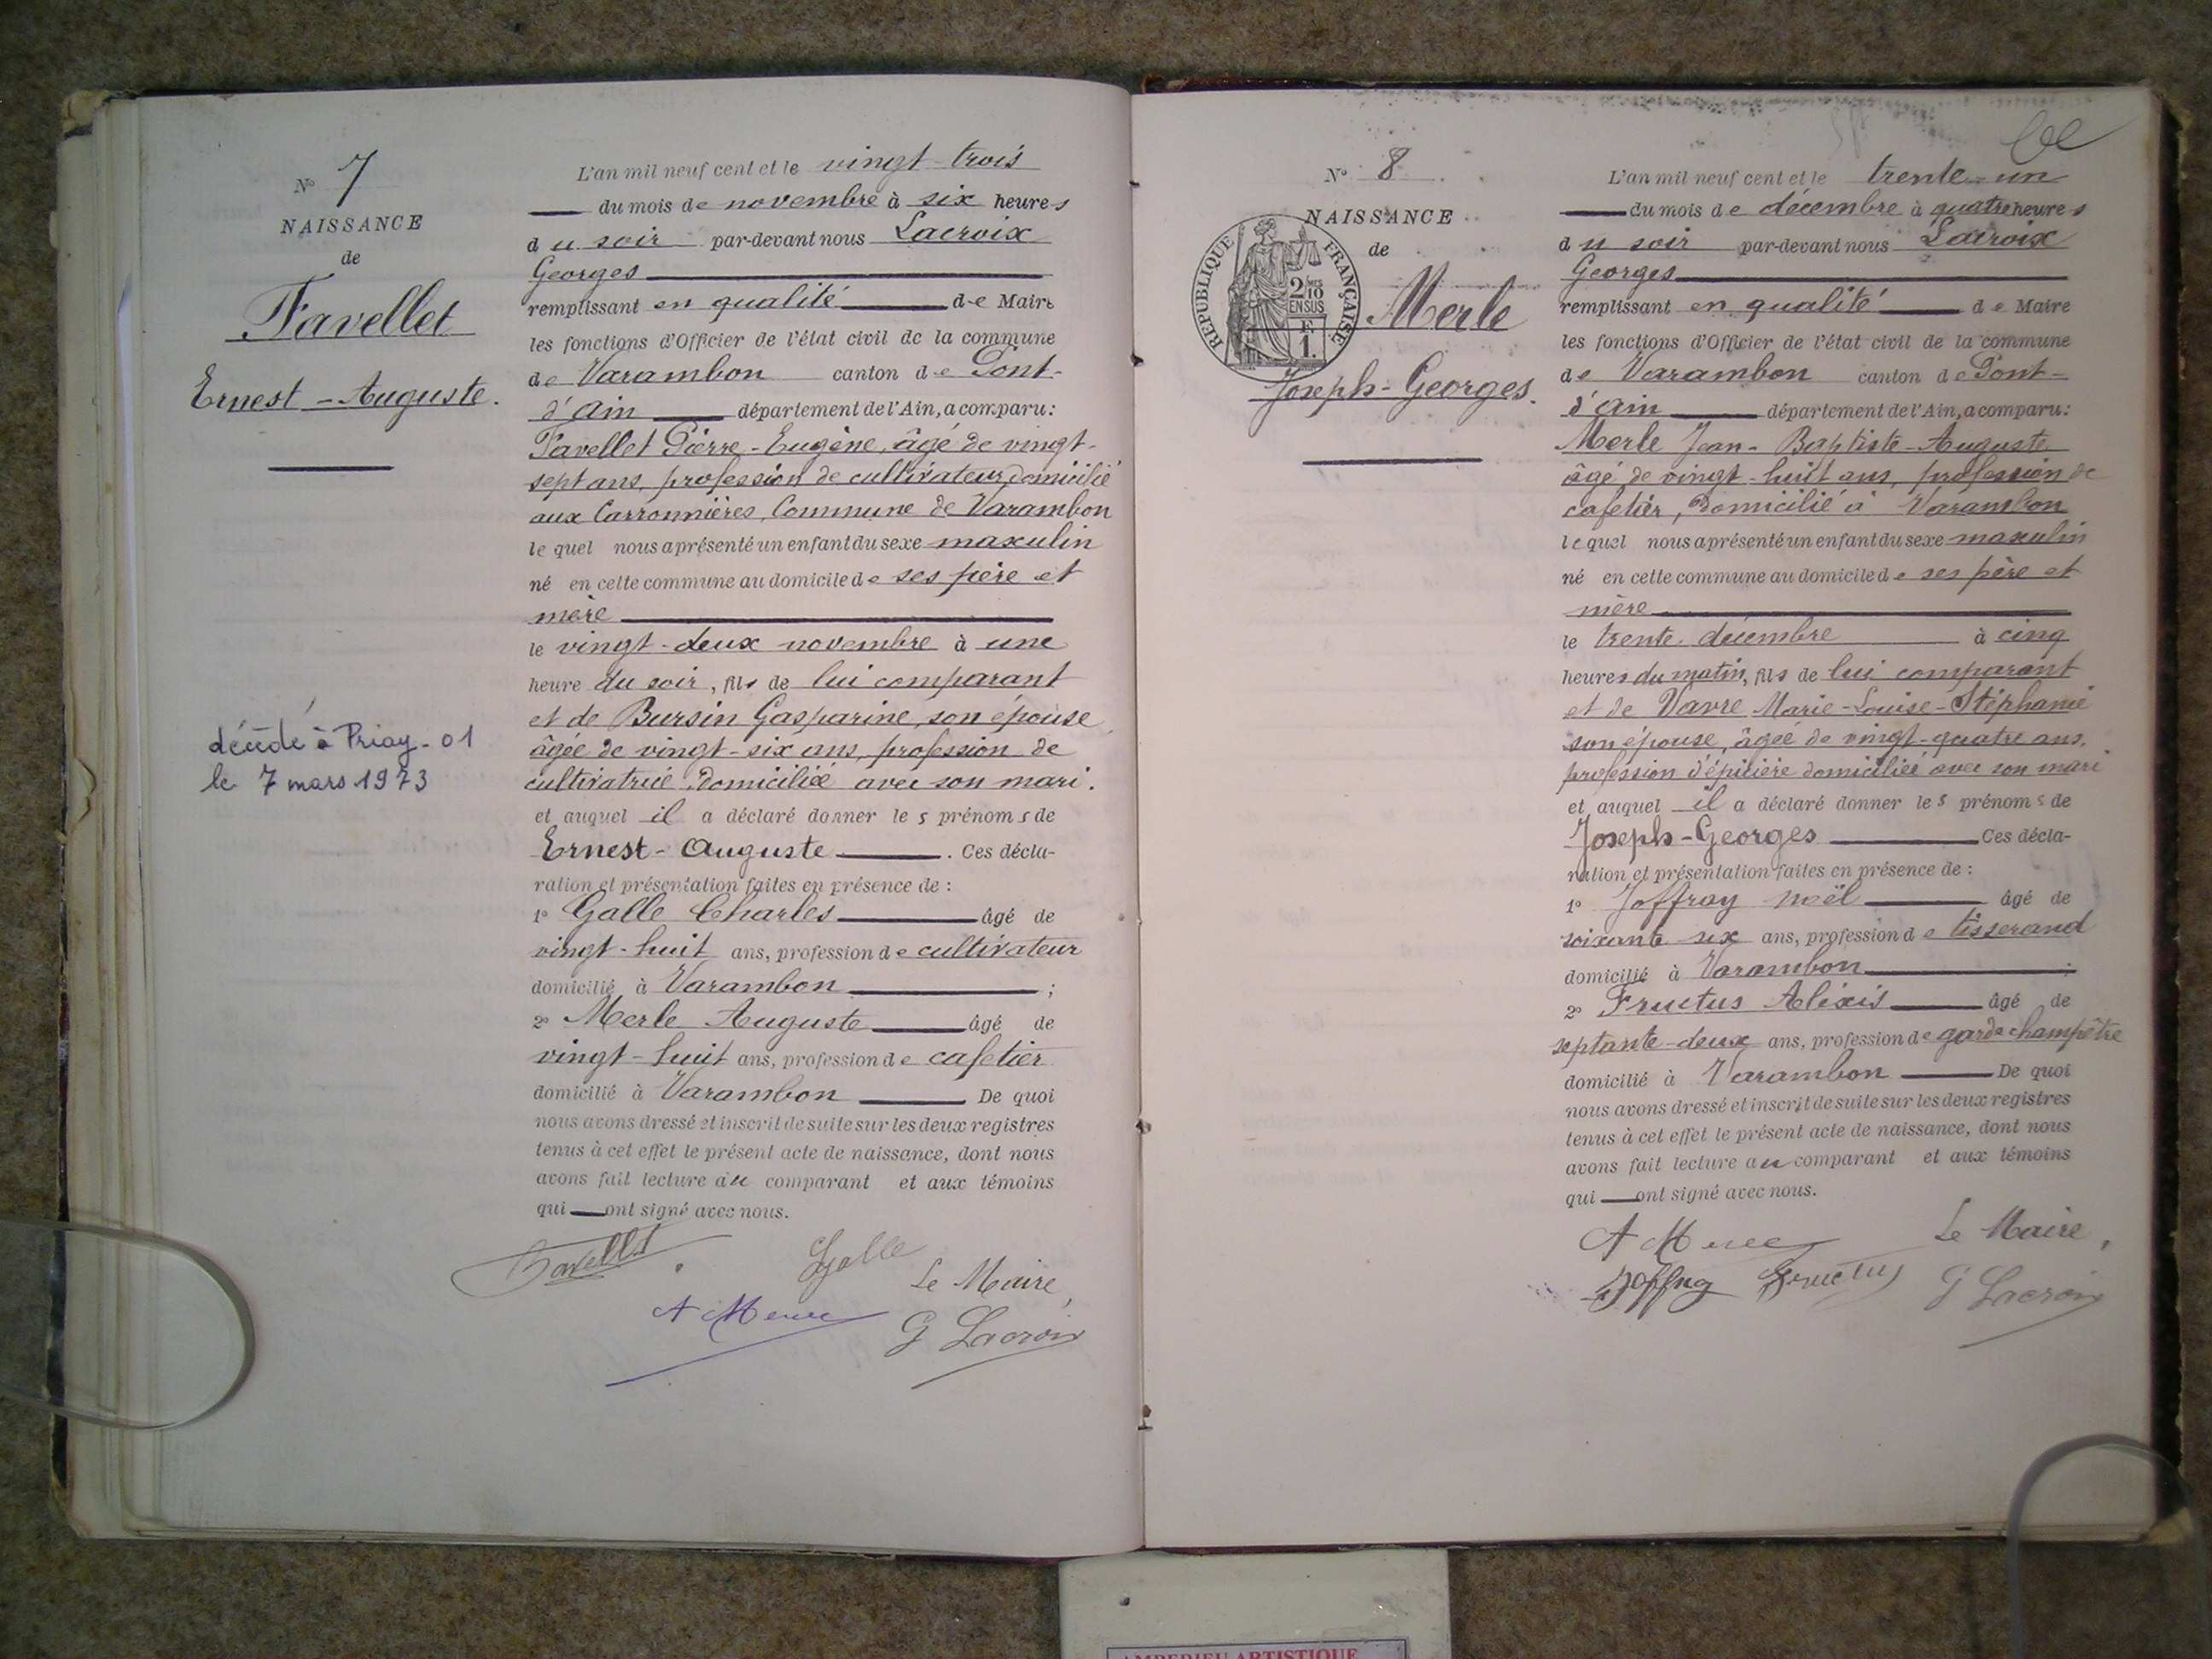 N° 7
NAISSANCE
de
Favellet
Ernest-Auguste.
décédé à Priay-01
le 7 mars 1973
L'an mil neuf cent et le vingt-trois
du mois de novembre à six heures
du soir par-devant nous Lacroix
Georges
remplissant en qualité de Maire
les fonctions d'Officier de l'état civil de la commune
de Varambon canton de Pont-
d'ain département de l'Ain, a comparu:
Favellet Pierre-Eugène, âgé de vingt-
sept ans, profession de cultivateur domicilié
aux Carronnières, Commune de Varambon
lequel nous a présenté un enfant du sexe masculin
né en cette commune au domicile de ses père et
mère
le vingt-deux novembre à une
heure du soir, fils de lui comparant
et de Bursin Gasparine, son épouse
âgée de vingt-six ans, profession de
cultivatrice, domiciliée avec son mari.
et auquel il a déclaré donner les prénoms de
Ernest-Auguste. Ces décla-
ration et présentation faites en présence de :
1° Galle Charles âgé de
vingt-huit ans, profession de cultivateur
domicilié à Varambon ;
2° Merle Auguste âgé de
vingt-huit ans, profession de cafetier
domicilié à Varambon De quoi
nous avons dressé et inscrit de suite sur les deux registres
tenus à cet effet le présent acte de naissance, dont nous
avons fait lecture au comparant et aux témoins
qui ont signé avec nous.
Favellet Galle
Le Maire,
A Merle G Lacroix
N° 8
NAISSANCE
de
Merle
Joseph-Georges.
REPUBLIQUE FRANÇAISE
2/10 MES
EN SUS
F.
1.
L'an mil neuf cent et le trente-un
du mois de décembre à quatre heures
du soir par-devant nous Lacroix
Georges
remplissant en qualité de Maire
les fonctions d'Officier de l'état civil de la commune
de Varambon canton de Pont-
d'ain département de l'Ain, a comparu:
Merle Jean-Baptiste-Auguste
âgé de vingt-huit ans, profession de
cafetier, domicilié à Varambon
lequel nous a présenté un enfant du sexe masculin
né en cette commune au domicile de ses père et
mère
le trente décembre à cinq
heures du matin, fils de lui comparant
et de Vavre Marie-Louise-Stéphanie
son épouse, âgée de vingt-quatre ans,
profession d'épicière domiciliée avec son mari
et auquel il a déclaré donner les prénoms de
Joseph-Georges Ces décla-
ration et présentation faites en présence de :
1° Joffray Noël âgé de
soixante six ans, profession de tisserand
domicilié à Varambon ;
2° Fructus Alexis âgé de
septante-deux ans, profession de garde champêtre
domicilié à Varambon De quoi
nous avons dressé et inscrit de suite sur les deux registres
tenus à cet effet le présent acte de naissance, dont nous
avons fait lecture au comparant et aux témoins
qui ont signé avec nous.
A Merle Le Maire,
Joffray Fructus G Lacroix
AMBERIEU ARTISTIQUE